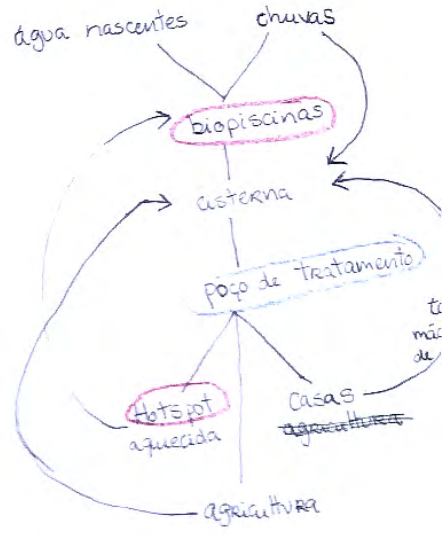 água nascentes
chuvas
biopiscinas
cisterna
poço de tratamento
Hotspot
aquecida
casas
agricultura
de
agricultura